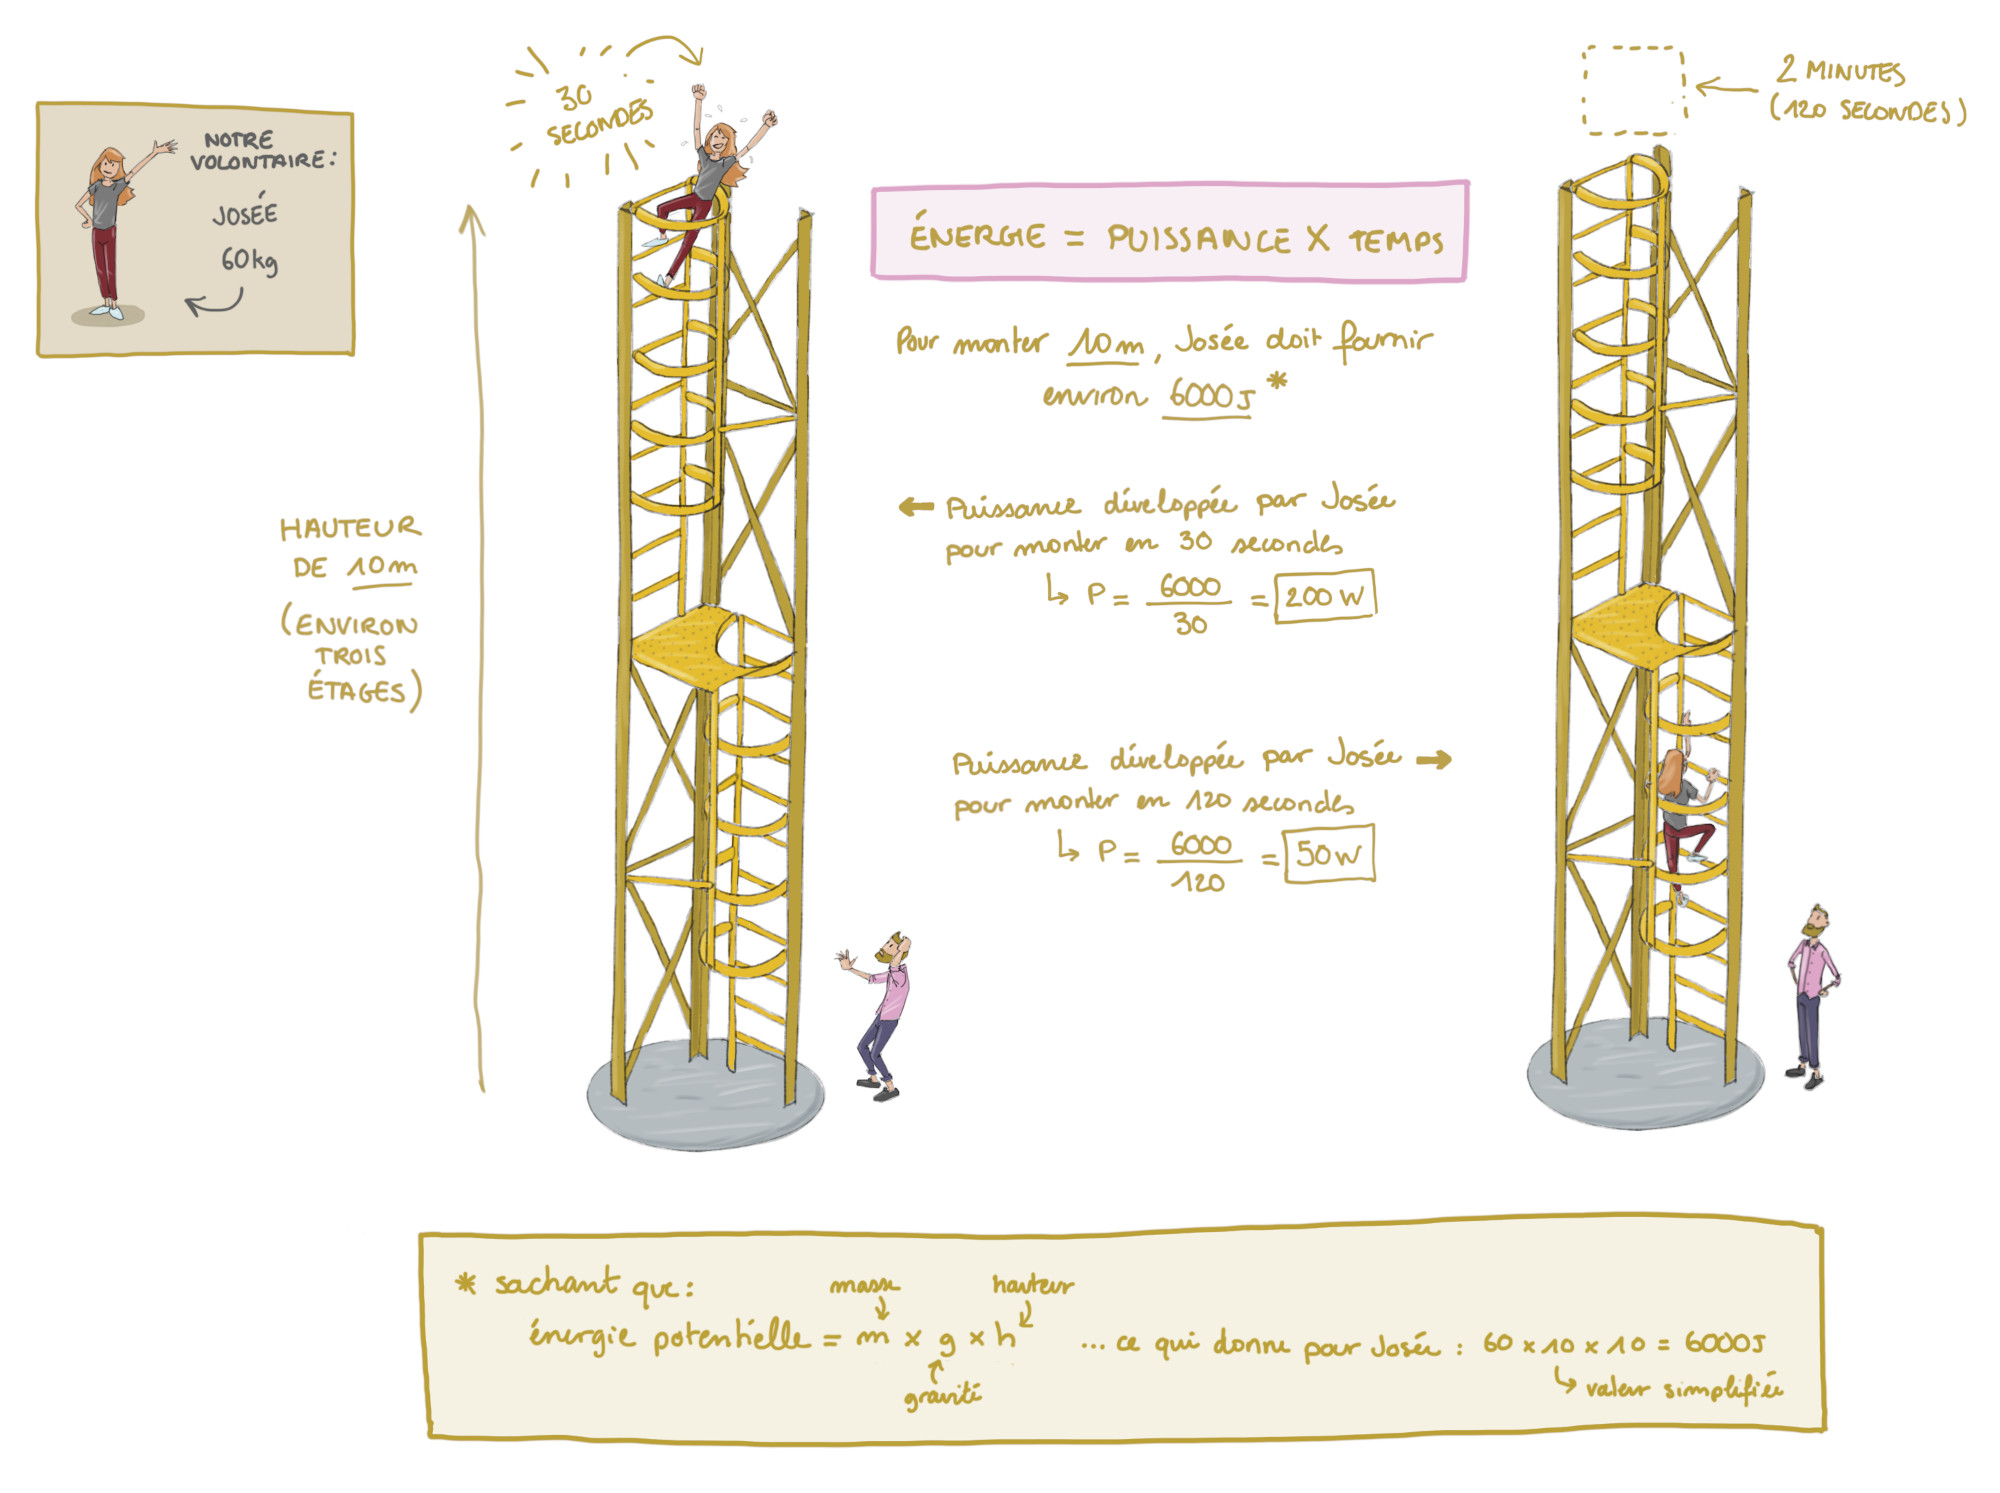 NOTRE
VOLONTAIRE :
JOSÉE
60kg
30
SECONDES
2 MINUTES
(120 SECONDES)
HAUTEUR
DE 10m
(ENVIRON
TROIS
ÉTAGES)
ÉNERGIE = PUISSANCE X TEMPS
Pour monter 10m, Josée doit fournir
environ 6000J *
← Puissance développée par Josée
pour monter en 30 secondes
↳ P = 6000 / 30 = 200 W
Puissance développée par Josée →
pour monter en 120 secondes
↳ P = 6000 / 120 = 50 W
* sachant que :
masse
hauteur
énergie potentielle = m x g x h ... ce qui donne pour Josée : 60 x 10 x 10 = 6000J
gravité
↳ valeur simplifiée